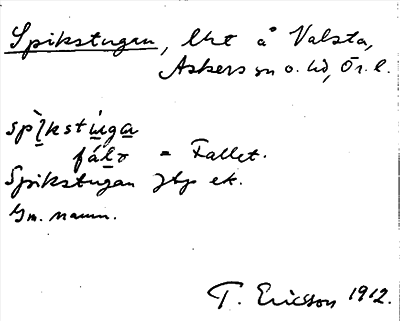 Spikstugan, lht å Valsta,
Askers sn o. hd, Ör. l.
spìkstùga
fálo = Fallet.
Spikstugan Jbp ek.
Gm. namn.
T. Ericson 1912.